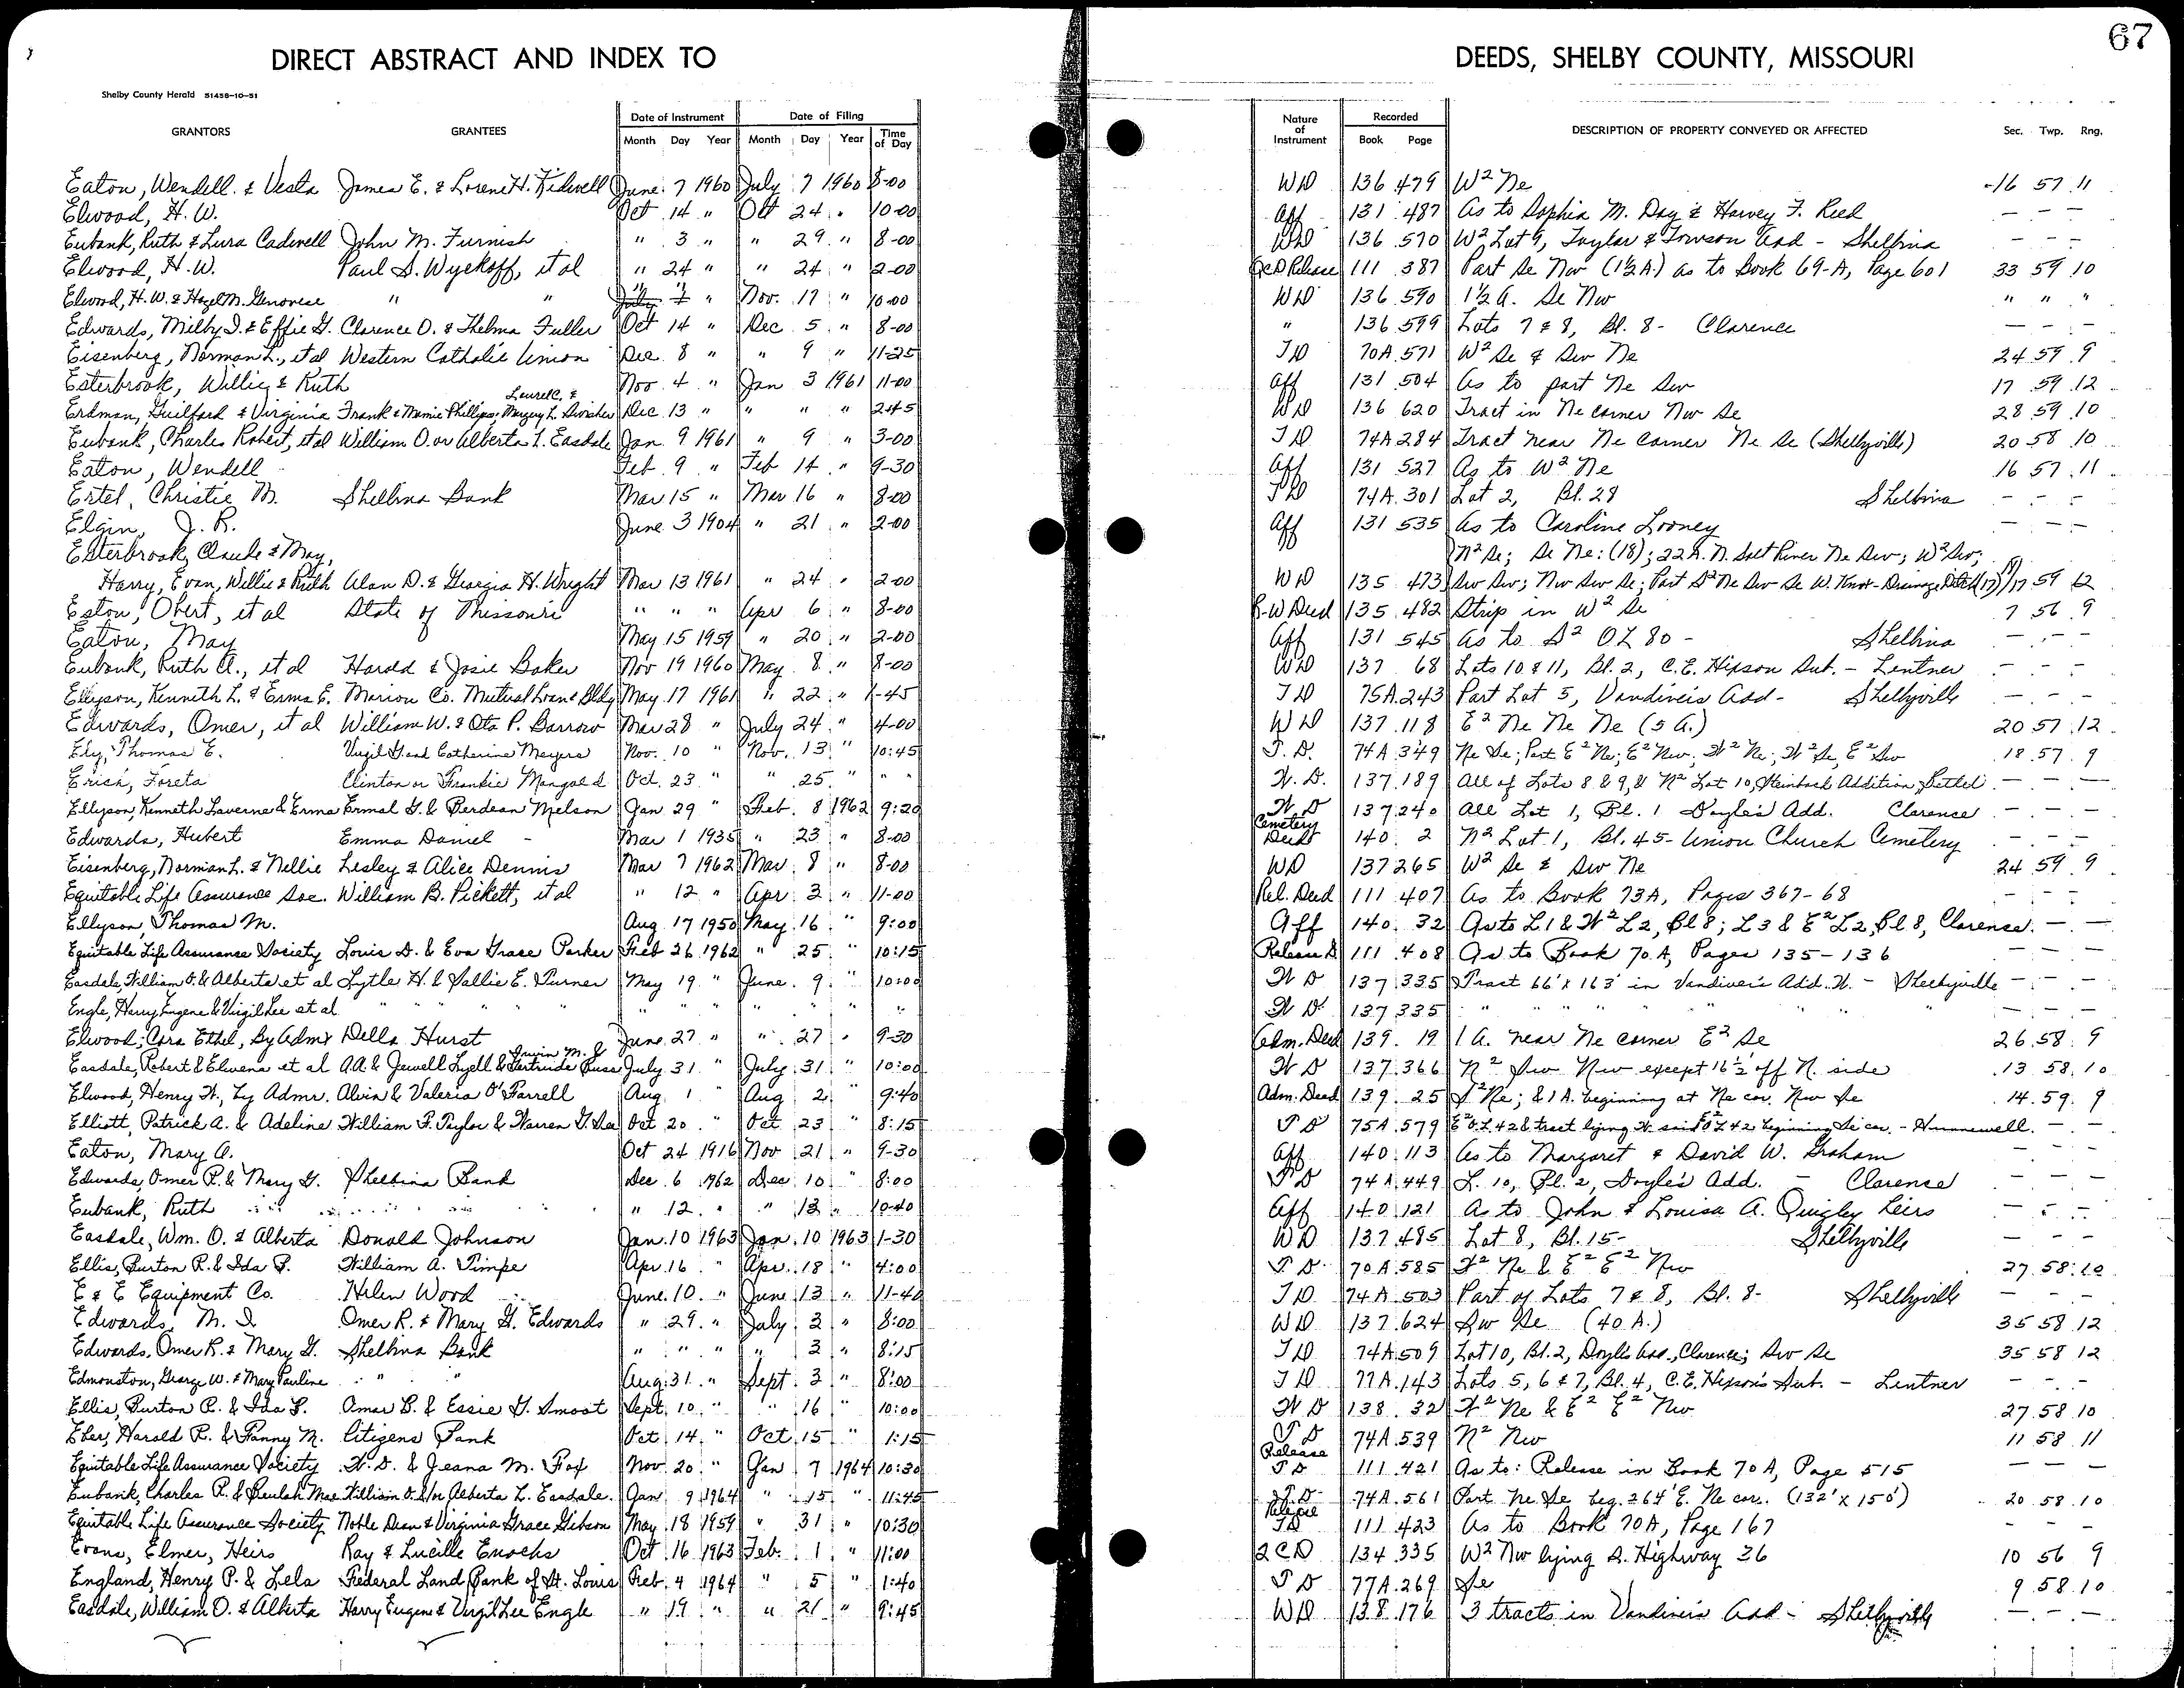 67
DIRECT ABSTRACT AND INDEX TO DEEDS, SHELBY COUNTY, MISSOURI
Shelby County Herald 51458-10-51
GRANTORS GRANTEES Date of Instrument Month Day Year Date of Filing Month Day Year Time of Day Nature of Instrument Recorded Book Page DESCRIPTION OF PROPERTY CONVEYED OR AFFECTED Sec. Twp. Rng.
Eaton, Wendell & Vesta James E. & Lorene H. Kidwell June 7 1960 July 7 1960 8-00 WD 136 479 W² Ne 16 57 11
Elwood, H. W. Oct 14 " Oct 24 " 10-00 Aff 131 487 As to Sophia M. Day & Harvey F. Reed — — —
Eubank, Ruth & Lura Cadwell John M. Furnish " 3 " " 29 " 8-00 WD 136 570 W² Lot 9, Taylor & Towson Add - Shelbina — — —
Elwood, H. W. Paul S. Wyckoff, et al " 24 " " 24 " 2-00 QCD Release 111 387 Part Se Nw (1½ A.) as to Book 69-A, Page 601 33 59 10
Elwood, H. W. & Hazel M. Genovese " " " " " Nov. 17 " 10-00 WD 136 590 1½ A. Se Nw " " "
Edwards, Milby I. & Effie G. Clarence O. & Thelma Fuller Oct 14 " Dec 5 " 8-00 " 136 599 Lots 7 & 8, Bl. 8 - Clarence — — —
Eisenberg, Norman L., et al Western Catholic Union Dec 8 " " 9 " 11-25 TD 70A 571 W² Se & Sw Ne 24 59 9
Esterbrook, Willie & Ruth Nov 4 " Jan 3 1961 11-00 Aff 131 504 As to part Ne Sw 17 59 12
Erdman, Guilford & Virginia Frank & Mamie Phillips; Laurel C. & Margery L. Swisher Dec 13 " " " " 2-45 WD 136 620 Tract in Ne corner Nw Se 28 59 10
Eubank, Charles Robert, et al William O. or Alberta L. Easdale Jan 9 1961 " 9 " 3-00 TD 74A 284 Tract near Ne corner Ne Se (Shelbyville) 20 58 10
Eaton, Wendell Feb 9 " Feb 14 " 9-30 Aff 131 527 As to W² Ne 16 57 11
Ertel, Christie M. Shelbina Bank Mar 15 " Mar 16 " 8-00 TD 74A 301 Lot 2, Bl. 28 Shelbina — — —
Elgin, J. R. June 3 1904 " 21 " 2-00 Aff 131 535 As to Caroline Looney — — —
Esterbrook, Claude & May, N² Se; Se Ne: (18); 22 A. N. Salt River Ne Sw; W² Sw;
Harry, Evan, Willie & Ruth Alan D. & Georgia H. Wright Mar 13 1961 " 24 " 2-00 WD 135 473 Sw Sw; Nw Sw Se; Part S² Ne Sw Se W. Drainage Ditch (17) 17 59 12
Eston, Obert, et al State of Missouri " " " Apr 6 " 8-00 R-W Deed 135 482 Strip in W² Se 7 56 9
Eaton, May May 15 1959 " 20 " 2-00 Aff 131 545 As to S² OL 80 - Shelbina — — —
Eubank, Ruth A., et al Harold & Josie Baker Nov 19 1960 May 8 " 8-00 WD 137 68 Lots 10 & 11, Bl. 2, C. E. Hixson Sub. - Lentner — — —
Ellyson, Kenneth L. & Erma E. Marion Co. Mutual Loan & Bldg May 17 1961 " 22 " 1-45 TD 75A 243 Part Lot 5, Vandiver's Add - Shelbyville — — —
Edwards, Omer, et al William W. & Ota P. Barrow Mar 28 " July 24 " 4-00 WD 137 118 E² Ne Ne Ne (5 A.) 20 57 12
Ely, Thomas E. Virgil G. and Catherine Meyers Nov. 10 " Nov. 13 " 10:45 T. D. 74A 349 Ne Se; Part E² Ne; E² Nw; W² Ne; W² Se, E² Sw 18 57 9
Erich, Foreta Clinton or Frankie Mangold Oct. 23 " " 25 " " " W. D. 137 189 All of Lots 8 & 9, & N² Lot 10, Steinbach Addition, Bethel — — —
Ellyson, Kenneth Laverne & Erma Ermal G. & Berdean Melson Jan 29 " Feb. 8 1962 9:20 W D 137 240 All Lot 1, Bl. 1 Doyle's Add. Clarence — — —
Edwards, Hubert Emma Daniel Mar 1 1935 " 23 " 8-00 Cemetery Deed 140 2 N² Lot 1, Bl. 45 - Union Church Cemetery — — —
Eisenberg, Norman L. & Nellie Lesley & Alice Dennis Mar 7 1962 Mar 8 " 8-00 WD 137 265 W² Se & Sw Ne 24 59 9
Equitable Life Assurance Soc. William B. Pickett, et al " 12 " Apr 3 " 11-00 Rel. Deed 111 407 As to Book 73A, Pages 367-68 — — —
Ellyson, Thomas M. Aug 17 1950 May 16 " 9:00 Aff 140 32 As to L1 & W² L2, Bl 8; L3 & E² L2, Bl 8, Clarence. — — —
Equitable Life Assurance Society Louis D. & Eva Grace Parker Feb 26 1962 " 25 " 10:15 Release D 111 408 As to Book 70 A, Pages 135-136 — — —
Easdale, William O. & Alberta et al Lytle H. & Sallie E. Turner May 19 " June 9 " 10:00 W D 137 335 Tract 66' x 163' in Vandiver's Add. W. - Shelbyville — — —
Engle, Harry Eugene & Virgil Lee et al " " " " " " " " W D 137 335 " " " " — — —
Elwood, Cora Ethel, By Admx Della Hurst June 27 " " 27 " 9-30 Adm. Deed 139 19 1 A. near Ne corner E² Se 26 58 9
Easdale, Robert & Elwena et al A.A. & Jewell Lyell & Irwin M. & Gertrude Buss July 31 " July 31 " 10:00 W D 137 366 N² Sw Nw except 16½' off N. side 13 58 10
Elwood, Henry W., by Admr. Alvin & Valeria O'Farrell Aug 1 " Aug 2 " 9:40 Adm. Deed 139 25 S² Ne; & 1 A. beginning at Ne cor. Nw Se 14 59 9
Elliott, Patrick A. & Adeline William F. Taylor & Warren G. See Oct 20 " Oct 23 " 8:15 T D 75A 579 E² OL 42 & tract lying W. said E² OL 42 beginning Se cor. - Hunnewell. — — —
Eaton, Mary A. Oct 24 1916 Nov 21 " 9-30 Aff 140 113 As to Margaret & David W. Graham — — —
Edwards, Omer R. & Mary G. Shelbina Bank Dec. 6 1962 Dec. 10 " 8:00 T D 74A 449 L. 10, Bl. 2, Doyle's Add. - Clarence — — —
Eubank, Ruth " 12 " " 13 " 10-40 Aff 140 121 As to John & Louisa A. Quigley Heirs — — —
Easdale, Wm. O. & Alberta Donald Johnson Jan. 10 1963 Jan. 10 1963 1-30 WD 137 485 Lot 8, Bl. 15 - Shelbyville — — —
Ellis, Burton R. & Ida F. William A. Pimpe Apr 16 " Apr. 18 " 4:00 T D 70A 585 W² Ne & E² E² Nw 27 58 10
E & E Equipment Co. Helen Wood June 10 " June 13 " 11-40 TD 74A 503 Part of Lots 7 & 8, Bl. 8 - Shelbyville — — —
Edwards, M. I. Omer R. & Mary G. Edwards " 29 " July 2 " 8:00 WD 137 624 Sw Se (40 A.) 35 58 12
Edwards, Omer R. & Mary G. Shelbina Bank " " " " 2 " 8:15 TD 74A 509 Lot 10, Bl. 2, Doyle's Add., Clarence; Sw Se 35 58 12
Edmonston, George W. & Mary Pauline " " Aug. 31 " Sept. 3 " 8:00 TD 77A 143 Lots 5, 6 & 7, Bl. 4, C. E. Hixson's Sub. - Lentner — — —
Ellis, Burton R. & Ida F. Omar B. & Essie G. Smoot Sept. 10 " " 16 " 10:00 W D 138 32 W² Ne & E² E² Nw 27 58 10
Eber, Harold R. & Fanny M. Citizens Bank Oct 14 " Oct 15 " 1:15 T D 74A 539 N² Nw 11 58 11
Equitable Life Assurance Society W. D. & Jeana M. Fox Nov. 20 " Jan 7 1964 10:30 Release T D 111 421 As to: Release in Book 70 A, Page 515 — — —
Eubank, Charles R. & Beulah Mae William O. &/or Alberta L. Easdale. Jan 9 1964 " 15 " 11:45 T. D. 74A 561 Part Ne Se beg. 264' E. Ne cor. (132' x 150') 20 58 10
Equitable Life Assurance Society Noble Dean & Virginia Grace Gibson May 18 1959 " 31 " 10:30 Release TD 111 423 As to Book 70A, Page 167 — — —
Evans, Elmer, Heirs Ray & Lucille Enochs Oct 16 1963 Feb. 1 " 11:00 QCD 134 335 W² Nw lying S. Highway 36 10 56 9
England, Henry P. & Lela Federal Land Bank of St. Louis Feb. 4 1964 " 5 " 1:40 T D 77A 269 Se 9 58 10
Easdale, William O. & Alberta Harry Eugene & Virgil Lee Engle " 19 " " 21 " 9:45 WD 138 176 3 tracts in Vandiver's Add - Shelbyville — — —